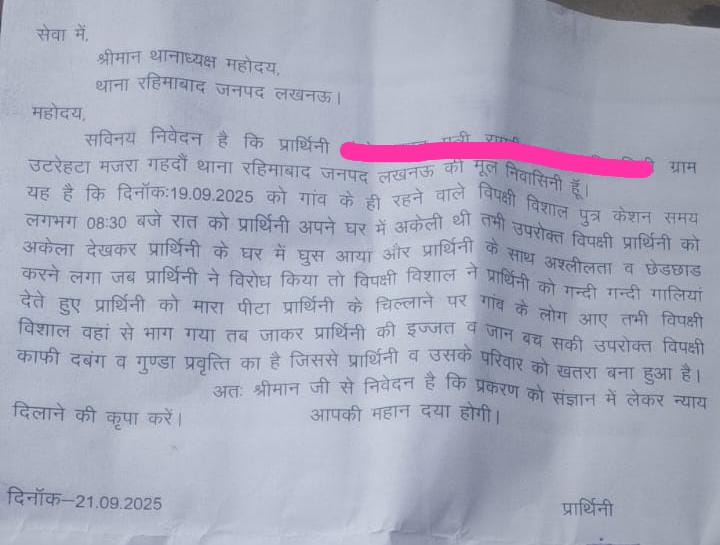 सेवा में,
श्रीमान थानाध्यक्ष महोदय,
थाना रहिमाबाद जनपद लखनऊ।
महोदय,
सविनय निवेदन है कि प्रार्थिनी ग्राम
उटरेहटा मजरा गहदौं थाना रहिमाबाद जनपद लखनऊ की मूल निवासिनी हूँ।
यह है कि दिनॉक:19.09.2025 को गांव के ही रहने वाले विपक्षी विशाल पुत्र केशन समय
लगभग 08:30 बजे रात को प्रार्थिनी अपने घर में अकेली थी तभी उपरोक्त विपक्षी प्रार्थिनी को
अकेला देखकर प्रार्थिनी के घर में घुस आया और प्रार्थिनी के साथ अश्लीलता व छेडछाड
करने लगा जब प्रार्थिनी ने विरोध किया तो विपक्षी विशाल ने प्रार्थिनी को गन्दी गन्दी गालियां
देते हुए प्रार्थिनी को मारा पीटा प्रार्थिनी के चिल्लाने पर गांव के लोग आए तभी विपक्षी
विशाल वहां से भाग गया तब जाकर प्रार्थिनी की इज्जत व जान बच सकी उपरोक्त विपक्षी
काफी दबंग व गुण्डा प्रवृत्ति का है जिससे प्रार्थिनी व उसके परिवार को खतरा बना हुआ है।
अतः श्रीमान जी से निवेदन है कि प्रकरण को संज्ञान में लेकर न्याय
दिलाने की कृपा करें। आपकी महान दया होगी।
दिनॉक–21.09.2025
प्रार्थिनी